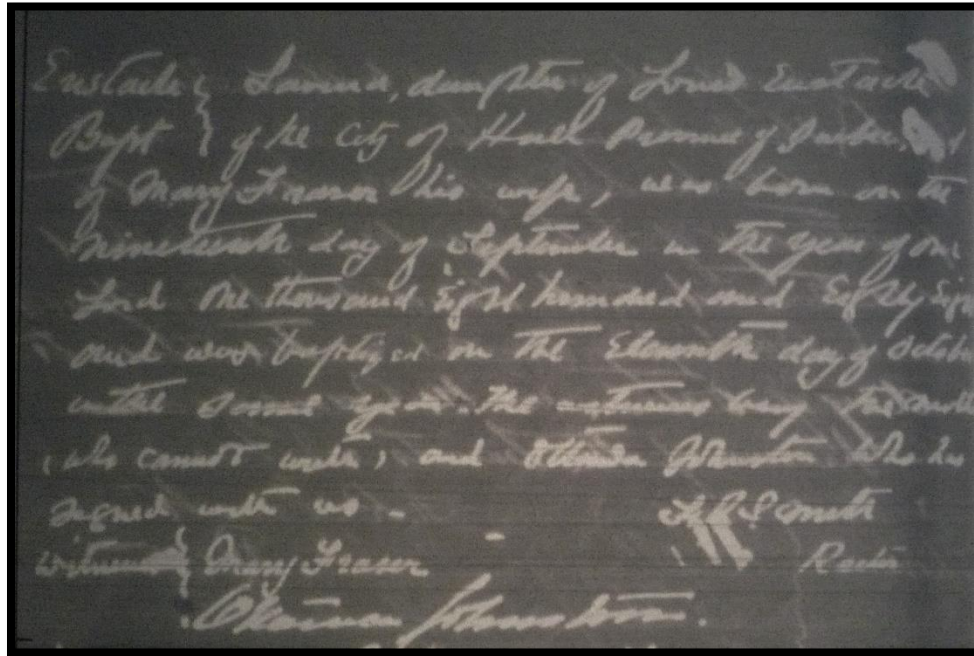 Eustache } Lavina, daughter of Louis Eustache
Bapt } of the City of Hull Province of Quebec,
of Mary Fraser his wife, was born on the
Nineteenth day of September in the year of our
Lord One thousand Eight hundred and Eighty Eigh
and was baptized on the Eleventh day of Octobe
in the same year. The witnesses being the
(who cannot write) and Johnston who has
signed with us -
Smith
Witnesses } Mary Fraser Rector
Johnston.